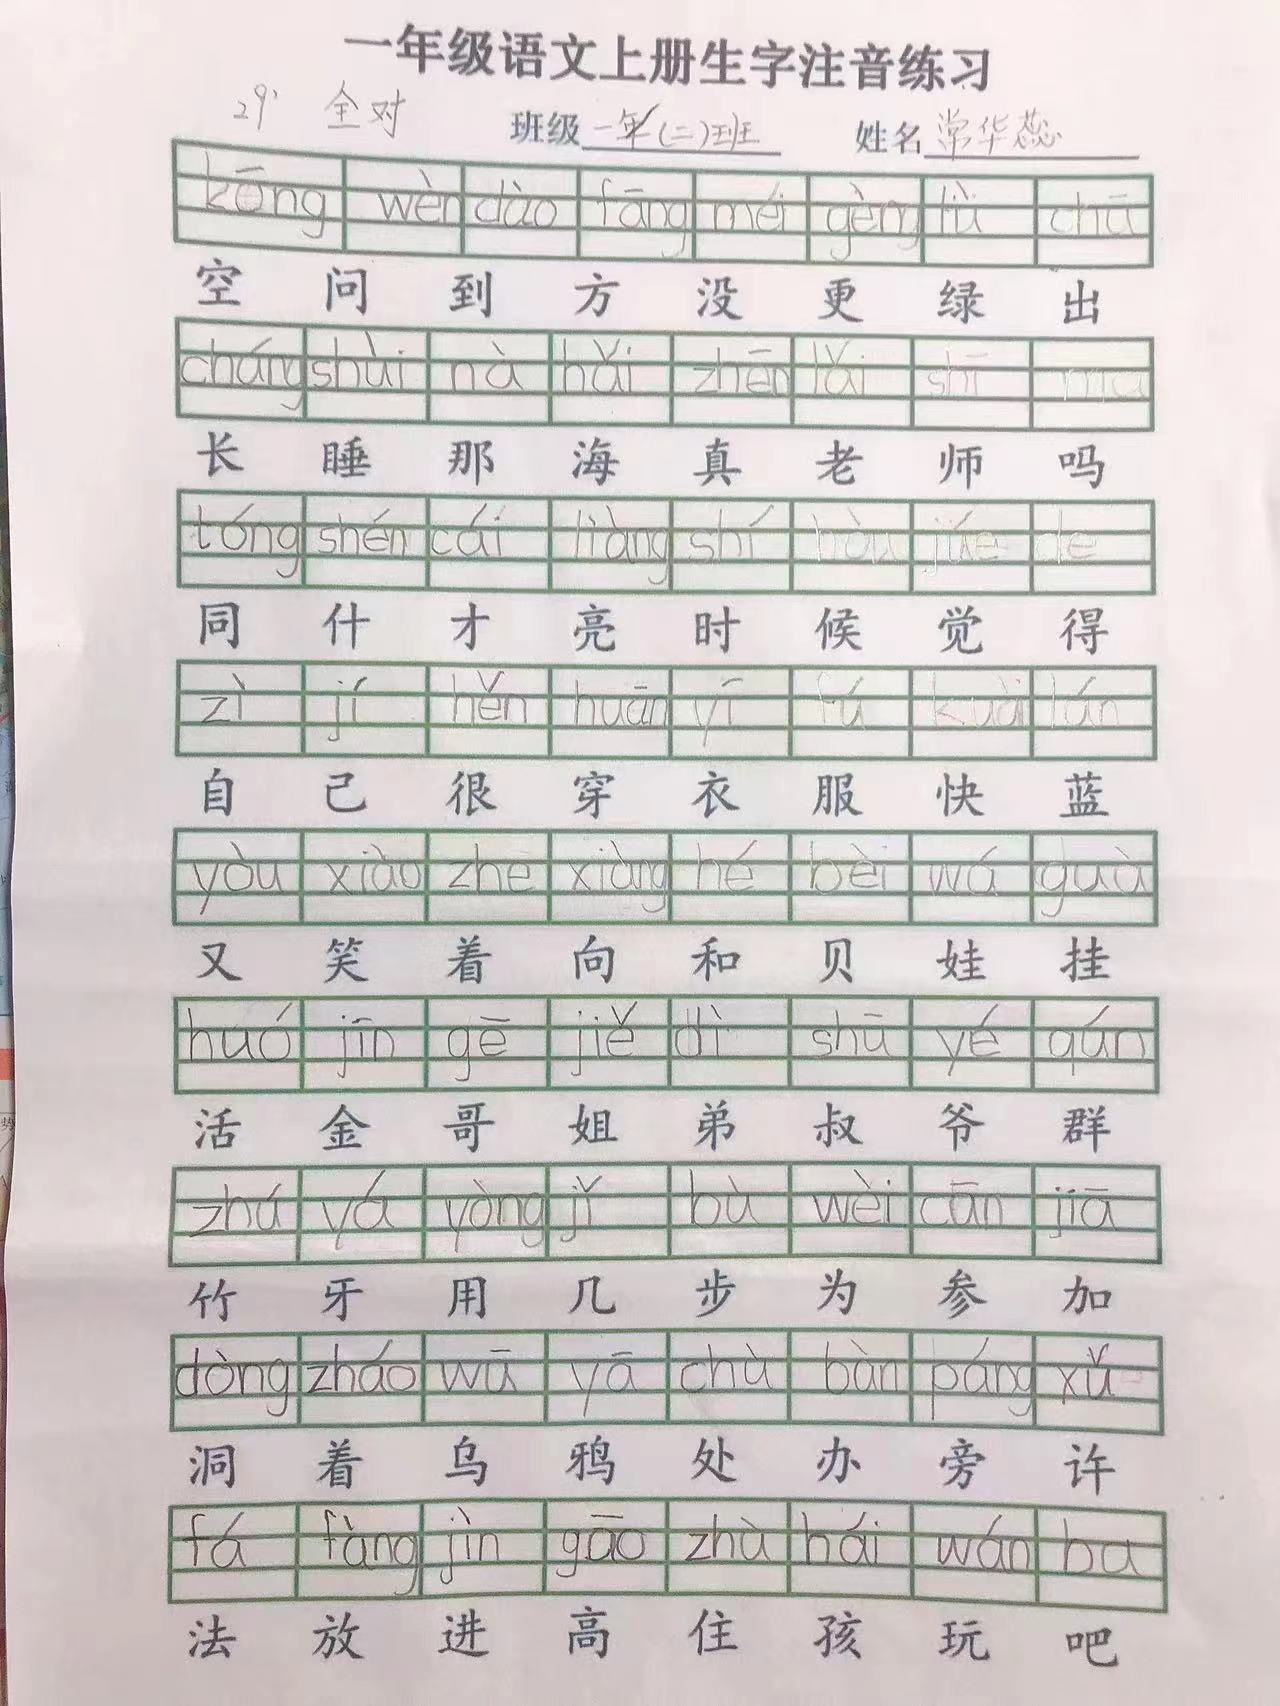 一年级语文上册生字注音练习
29' 全对 班级 一年(二)班 姓名 常华蕊
kōng wèn dào fāng méi gèng lǜ chū
空 问 到 方 没 更 绿 出
cháng shùi nà hǎi zhēn lǎi shī ma
长 睡 那 海 真 老 师 吗
tóng shén cái liàng shí hòu júe de
同 什 才 亮 时 候 觉 得
zì jí hěn huān yī fú kuài lán
自 己 很 穿 衣 服 快 蓝
yòu xiào zhe xiàng hé bèi wá guà
又 笑 着 向 和 贝 娃 挂
huó jīn gē jiě dì shū yé qún
活 金 哥 姐 弟 叔 爷 群
zhú yá yòng jǐ bù wèi cān jiā
竹 牙 用 几 步 为 参 加
dòng zháo wū yā chù bàn páng xǔ
洞 着 乌 鸦 处 办 旁 许
fá fàng jìn gāo zhù hái wán ba
法 放 进 高 住 孩 玩 吧